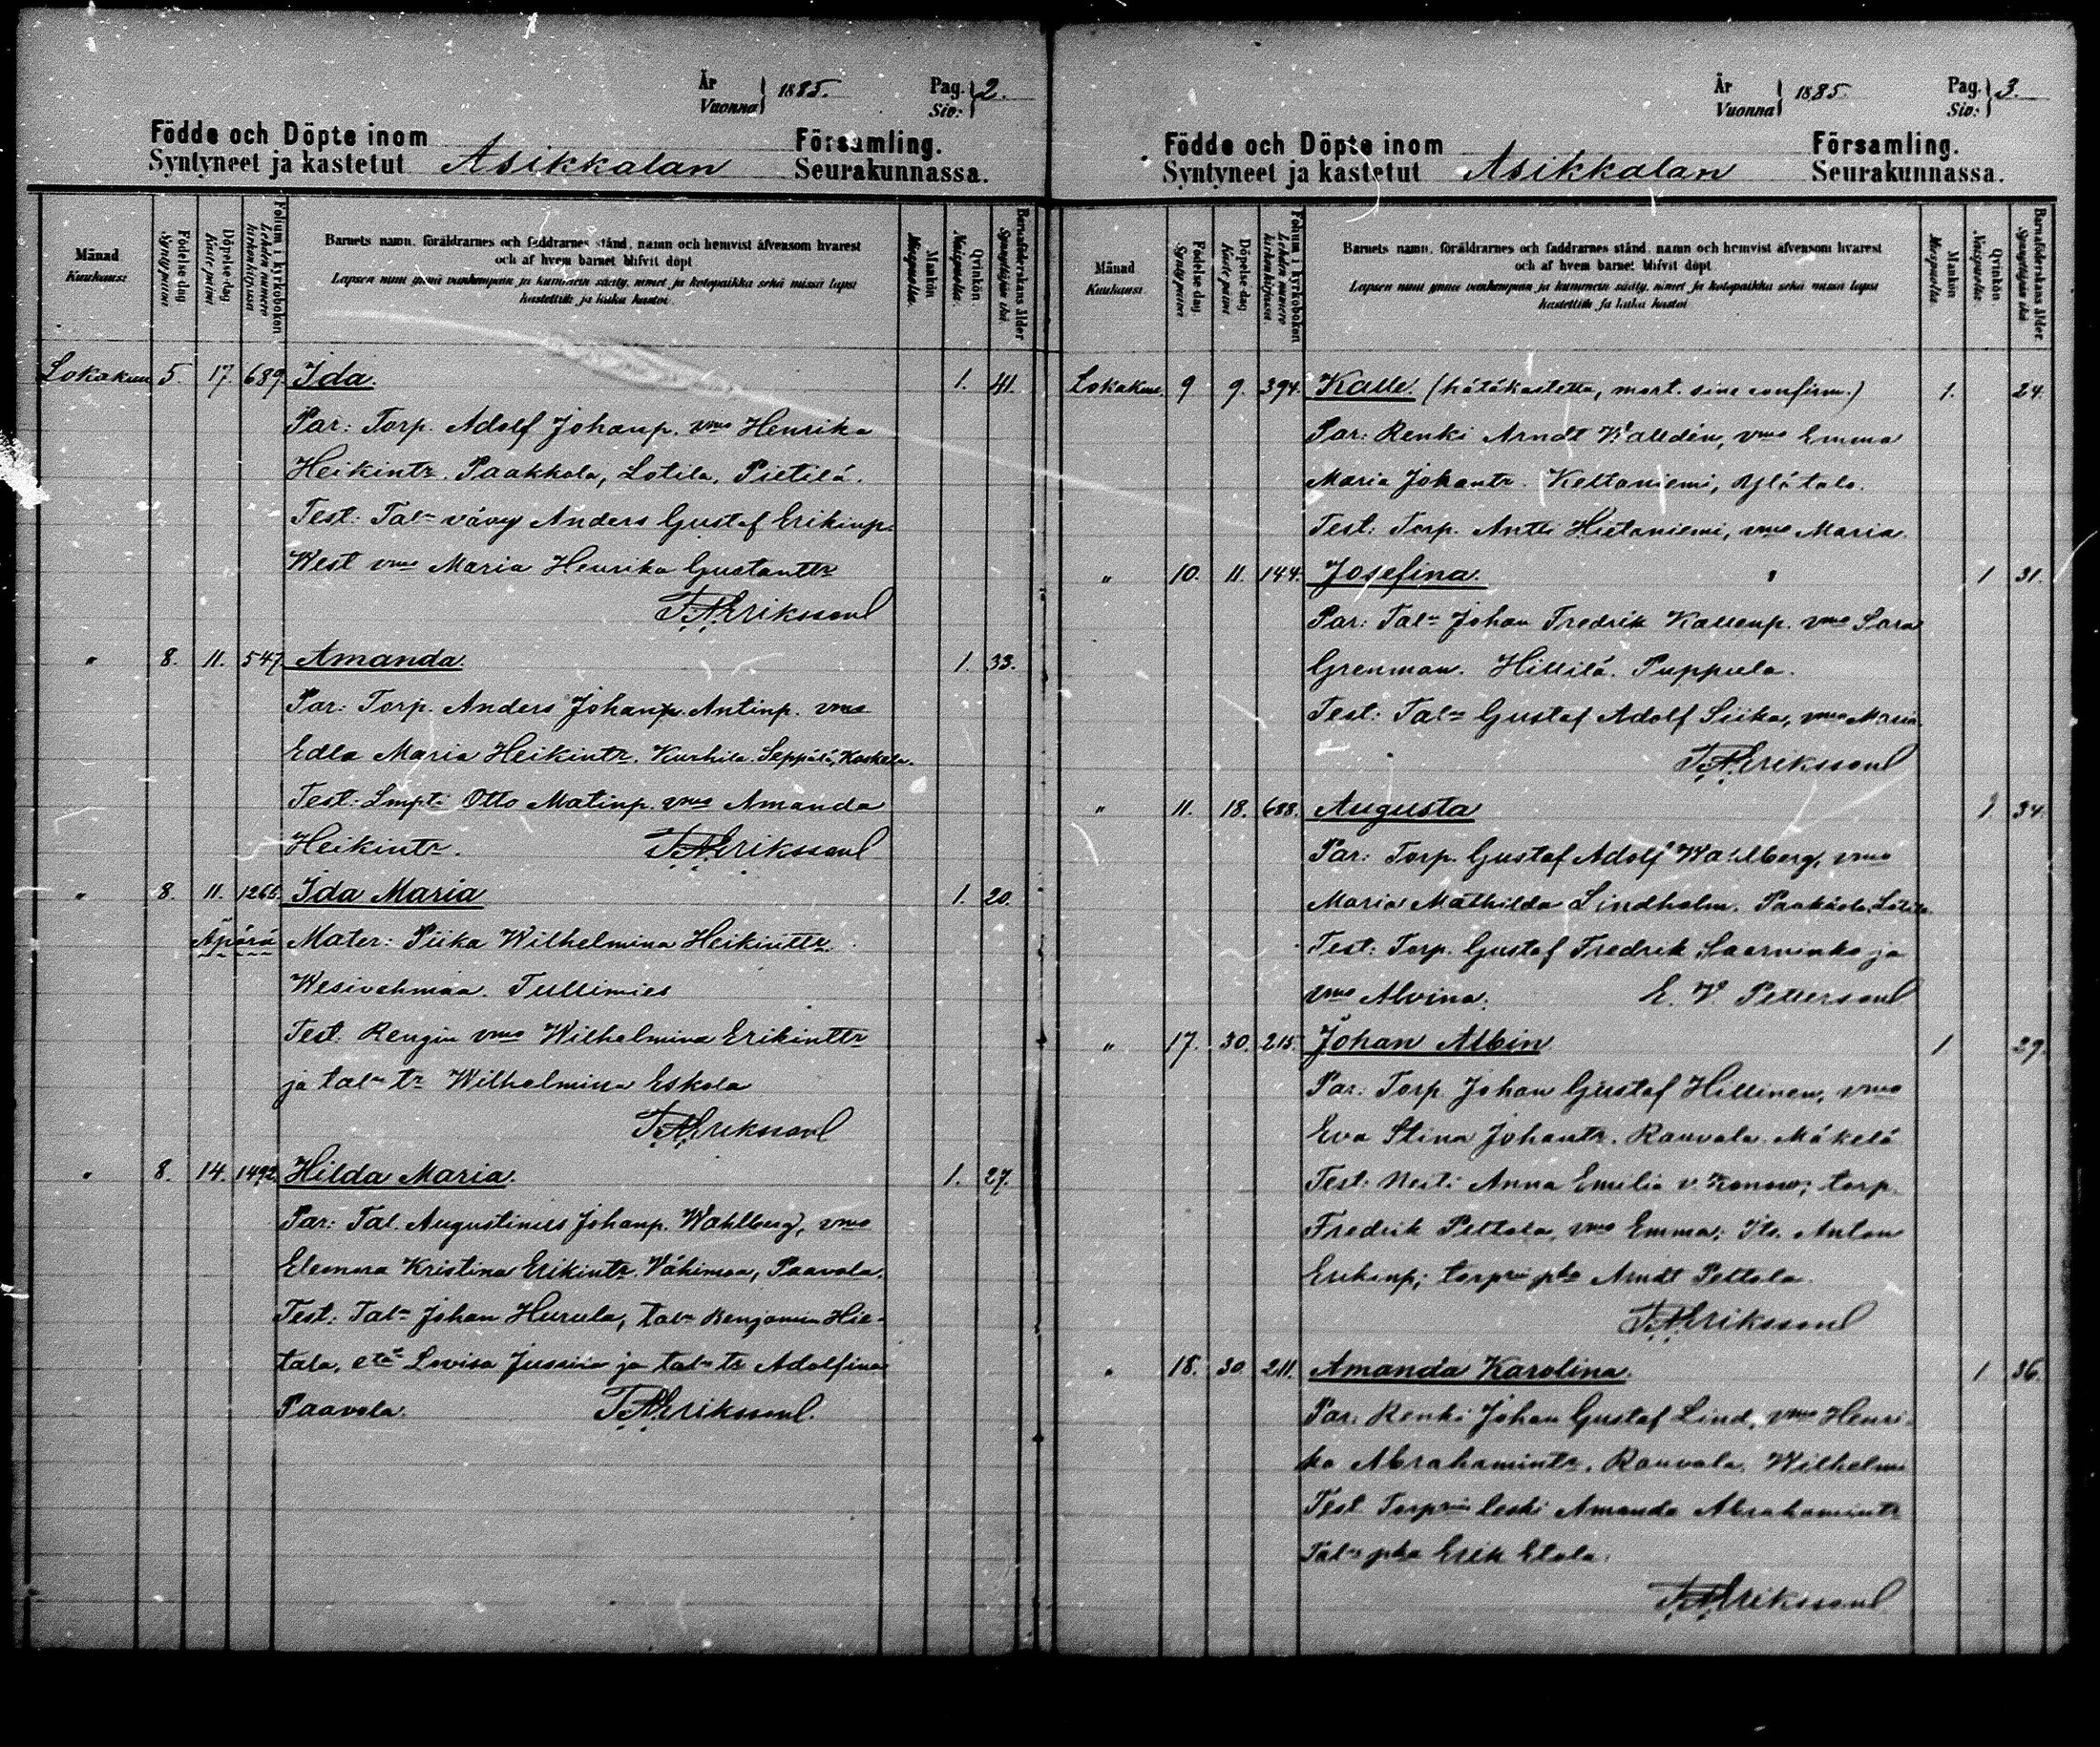 År
Vuonna } 1885.
Pag.
Siv: } 2.
Födde och Döpte inom
Syntyneet ja kastetut Asikkalan
Församling.
Seurakunnassa.
Månad
Kuukausi
Födelse dag
Syntypäivä
Döpelse dag
Kastepäivä
Folium i kyrkoboken
Lehden numero kirkonkirjassa
Barnets namn, föräldrarnes och faddrarnes stånd, namn och hemvist äfvensom hvarest
och af hvem barnet blifvit döpt
Lapsen nimi ynnä vanhempain ja kummein sääty, nimet ja kotopaikka sekä missä lapsi
kastettiin ja kuka kastoi
Mankön
Miespuolia.
Qvinkön
Naispuolia.
Barnaföderskans ålder
Synnyttäjän ikä.
Lokakuu 5. 17. 689. Ida. 1. 41.
Par: Torp. Adolf Johanp. vmo Henrika
Heikintr. Paakkola, Lotila, Pietilä.
Test: Taln vävy Anders Gustaf Erikinp.
West vmo Maria Henrika Gustanttr
T. A. Eriksson
" 8. 11. 547. Amanda. 1. 33.
Par: Torp. Anders Johanp. Antinp. vmo
Edla Maria Heikintr. Kurhila. Seppälä, Koskela.
Test: Lmpti Otto Matinp. vmo Amanda
Heikintr. T. A. Eriksson
" 8. 11. 1266. Ida Maria 1. 20.
Äpärä Mater: Piika Wilhelmina Heikinttr.
Wesivehmaa. Tullimies
Test. Rengin vmo Wilhelmina Erikinttr
ja taln tr Wilhelmina Eskola
T. A. Eriksson
" 8. 14. 1492. Hilda Maria. 1. 27.
Par: Tal. Augustinus Johanp. Wahlberg, vmo
Eleonora Kristina Erikintr. Vähimaa, Paavola.
Test: Taln Johan Hurula, taln Benjamin Hie-
tala, etä Lovisa Jussila ja taln tr Adolfina
Paavola. T. A. Eriksson.
År
Vuonna } 1885.
Pag.
Siv: } 3.
Födde och Döpte inom
Syntyneet ja kastetut Asikkalan
Församling.
Seurakunnassa.
Månad
Kuukausi
Födelse dag
Syntypäivä
Döpelse dag
Kastepäivä
Folium i kyrkoboken
Lehden numero kirkonkirjassa.
Barnets namn, föräldrarnes och faddrarnes stånd, namn och hemvist äfvensom hvarest
och af hvem barnet blifvit döpt
Lapsen nimi ynnä vanhempain ja kummein sääty, nimet ja kotopaikka sekä missä lapsi
kastettiin ja kuka kastoi
Mankön
Miespuolia
Qvinkön
Naispuolia
Barnaföderskans ålder
Synnyttäjän ikä.
Lokakuu. 9 9. 394. Kalle. (hätäkastettu, mort. sine confirm.) 1. 24.
Par: Renki Arndt Walldén, vmo Emma
Maria Johantr. Keltaniemi, Ylätalo.
Test: Torp. Antti Hietaniemi, vmo Maria.
" 10. 11. 144. Josefina. 1 31.
Par: Taln Johan Fredrik Kallenp. vmo Sara
Grenman. Hillilä. Puppula.
Test: Taln Gustaf Adolf Siika, vmo Maria
T. A. Eriksson
" 11. 18. 688. Augusta 1. 34.
Par: Torp. Gustaf Adolf Wahlberg, vmo
Maria Mathilda Lindholm. Paakkola, Lotila.
Test: Torp. Gustaf Fredrik Saarvinko ja
vmo Alvina. E. V. Pettersson
" 17. 30. 215. Johan Albin 1 29.
Par: Torp. Johan Gustaf Hillinen, vmo
Eva Stina Johantr. Rauvola. Mäkelä
Test: Neiti Anna Emilia v. Konow; torp.
Fredrik Peltola, vmo Emma; Its. Anton
Erikinp; torprin pka Arndt Peltola.
T. A. Eriksson
" 18. 30. 211. Amanda Karolina. 1 36.
Par: Renki Johan Gustaf Lind, vmo Henri-
ka Abrahamintr. Rauvola. Wilhelm
Test. Torprin leski Amanda Abrahamintr
Taln pka Erik Elola.
T. A. Eriksson